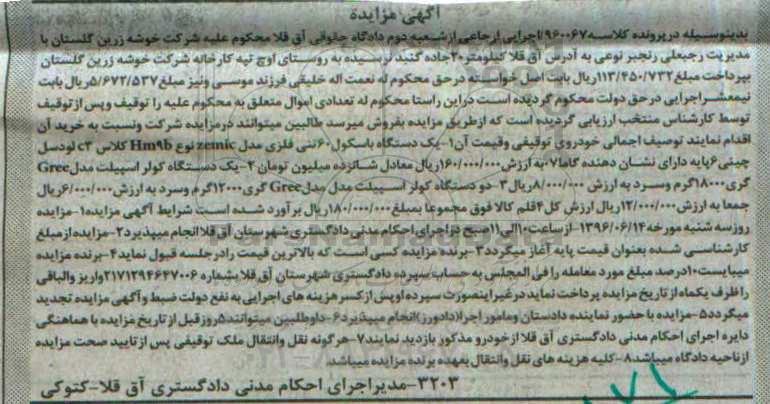 آگهی مزایده
بدینوسیله در پرونده کلاسه ۹۶۰۰۶۷/اجرایی ارجاعی از شعبه دوم دادگاه حقوقی آق قلا محکوم علیه شرکت خوشه زرین گلستان با
مدیریت رجبعلی رنجبر نوعی به آدرس آق قلا کیلومتر ۲۰ جاده گنبد نرسیده به روستای اوچ تپه کارخانه شرکت خوشه زرین گلستان
بپرداخت مبلغ ۱۱۳/۴۵۰/۷۳۲ ریال بابت اصل خواسته در حق محکوم له نعمت اله خلیقی فرزند موسی ونیز مبلغ ۵/۶۷۲/۵۳۷ ریال بابت
نیمعشر اجرایی در حق دولت محکوم گردیده است در این راستا محکوم له تعدادی اموال متعلق به محکوم علیه را توقیف و پس از توقیف
توسط کارشناس منتخب ارزیابی گردیده است که از طریق مزایده بفروش میرسد طالبین میتوانند در مزایده شرکت ونسبت به خرید آن
اقدام نمایند توصیف اجمالی خودروی توقیفی وقیمت آن ۱-یک دستگاه باسکول ۶۰ تنی فلزی مدل zemic نوع Hm9b کلاس c3 لودسل
چینی ۶ پایه دارای نشان دهنده کاما ۷ به ارزش ۱۶۰/۰۰۰/۰۰۰ ریال معادل شانزده میلیون تومان ۲-یک دستگاه کولر اسپیلت مدل Gree
گری ۱۸۰۰۰ گرم وسرد به ارزش ۸/۰۰۰/۰۰۰ ریال ۳-دو دستگاه کولر اسپیلت مدل مدل Gree گری ۱۲۰۰۰ گرم وسرد به ارزش ۶/۰۰۰/۰۰۰ ریال
جمعا به ارزش ۱۲/۰۰۰/۰۰۰ ریال ارزش کل ۴ قلم کالا فوق مجموعا بمبلغ ۱۸۰/۰۰۰/۰۰۰ ریال برآورد شده است شرایط آگهی مزایده ۱-مزایده
روز سه شنبه مورخه ۱۳۹۶/۰۶/۱۴-از ساعت ۱۰ الی ۱۱ صبح در اجرای احکام مدنی دادگستری شهرستان آق قلا انجام میپذیرد ۲-مزایده از مبلغ
کارشناسی شده بعنوان قیمت پایه آغاز میگردد ۳-برنده مزایده کسی است که بالاترین قیمت را در جلسه قبول نماید ۴-برنده مزایده
میبایست ۱۰ درصد مبلغ مورد معامله را فی المجلس به حساب سپرده دادگستری شهرستان آق قلا بشماره ۲۱۷۱۲۹۴۶۴۷۰۰۶ واریز والباقی
را ظرف یکماه از تاریخ مزایده پرداخت نماید در غیر اینصورت سپرده او پس از کسر هزینه های اجرایی به نفع دولت ضبط و آگهی مزایده تجدید
میگردد ۵-مزایده با حضور نماینده دادستان ومامور اجرا (دادورز) انجام میپذیرد ۶-داوطلبین میتوانند ۵ روز قبل از تاریخ مزایده با هماهنگی
دایره اجرای احکام مدنی دادگستری آق قلا از خودرو مذکور بازدید نمایند ۷-هرگونه نقل وانتقال ملک توقیفی پس از تایید صحت مزایده
از ناحیه دادگاه میباشد ۸-کلیه هزینه های نقل وانتقال بعهده برنده مزایده میباشد
۳۲۰۳-مدیر اجرای احکام مدنی دادگستری آق قلا-کتوکی